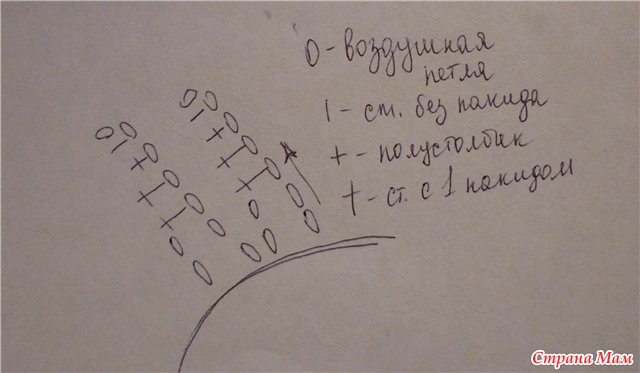 0 - воздушная
петля
| - ст. без накида
+ - полустолбик
† - ст. с 1 накидом
Страна Мам